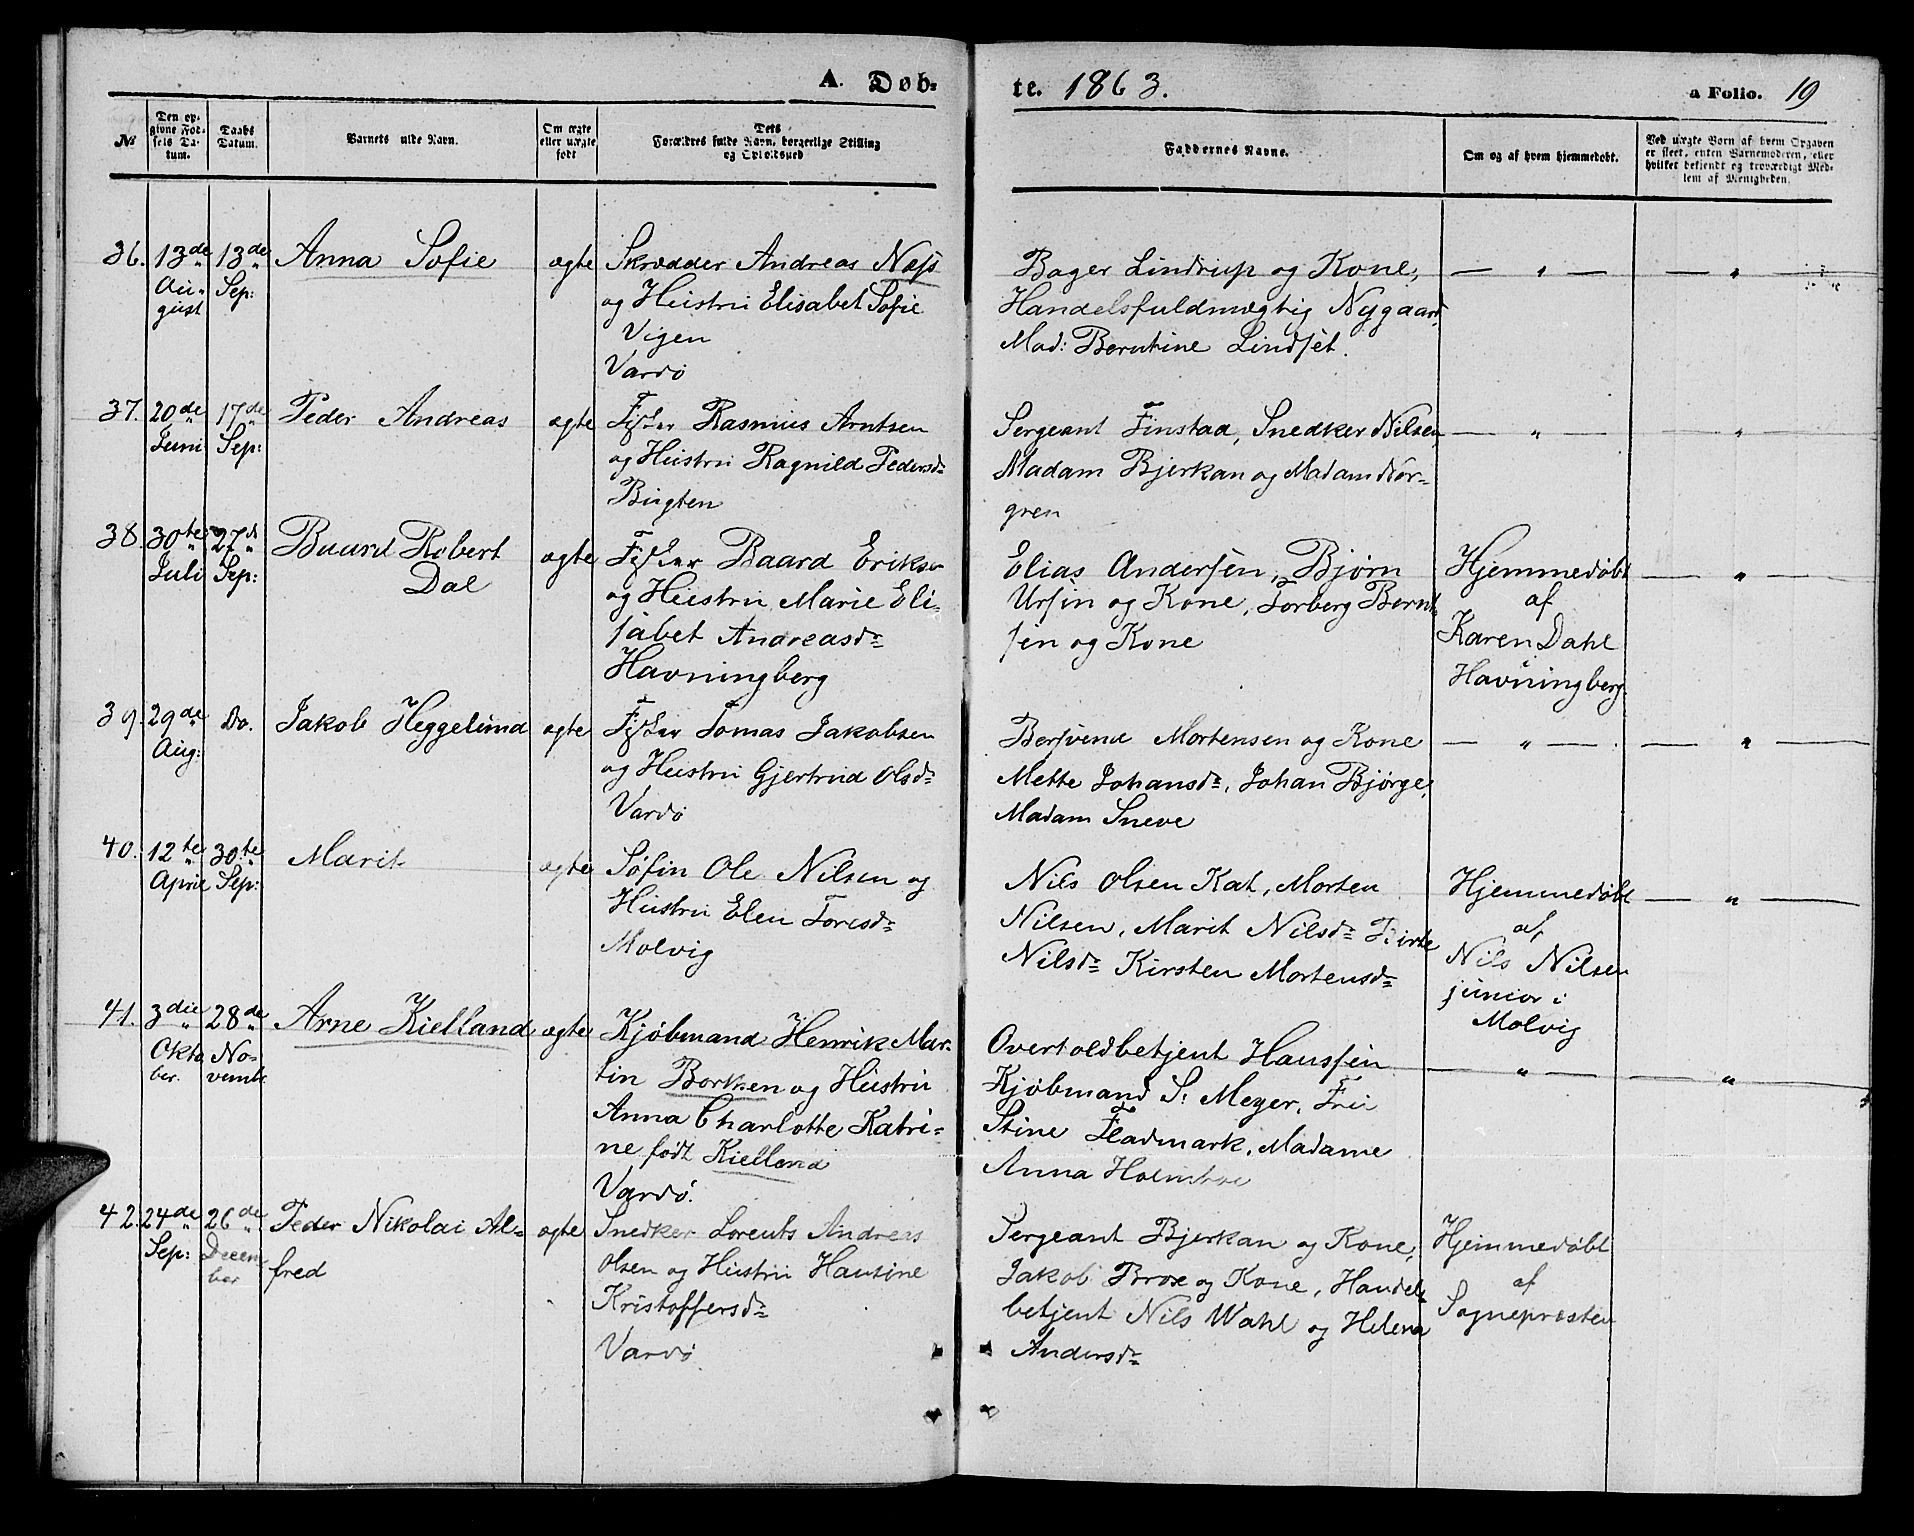 A. Døb-
te. 1863.
a Folio. 19
№
Den op-
givne Fød-
sels Da-
tum.
Daabs
Datum.
Barnets fulde Navn.
Om ægte
eller uægte
født
Dets
Forældres fulde Navn, borgerlige Stilling
og Opholdssted
Faddernes Navne.
Om og af hvem hjemmedøbt.
Ved uægte Børn af hvem Opgaven
er skeet, enten Barnemoderen, eller
hvilket bekjendt og troværdigt Med-
lem af Menigheden.
36.
13de
Au-
gust
13de
Sep:
Anna Sofie
ægte
Skrædder Andreas Næss
og Hustru Elisabet Sofie
Vigen
Vardø
Bager Lindrup og Kone,
Handelsfuldmægtig Nygaard,
Mad: Berntine Lindset.
— " —
— " —
37.
20de
Juni
17de
Sep:
Peder Andreas
ægte
Fisker Rasmus Arntsen
og Hustru Ragnild Pedersd:
Bugten
Sergeant Finstad, Snedker Nilsen
Madam Bjerkan og Madam Nor-
gren
— " —
— " —
38.
30te
Juli
27de
Sep:
Baard Robert
Dal
ægte
Fisker Baard Eriksen
og Hustru Marie Eli-
sabet Andreasd:
Havningberg
Elias Andersen, Bjørn
Ursin og Kone, Torberg Bernt-
sen og Kone
Hjemmedøbt
af
Karen Dahl
Havningberg
— " —
39.
29de
Aug:
Do.
Jakob Heggelund
ægte
Fisker Tomas Jakobsen
og Hustru Gjertrud Olsd:
Vardø
Bersvend Mortensen og Kone
Mette Johansd:, Johan Bjørge,
Madam Sneve
— " —
— " —
40.
12te
April
30te
Sep:
Marit
ægte
Søfin Ole Nilsen og
Hustru Elen Toresd:
Molvig
Nils Olsen Kat, Morten
Nilsen, Marit Nilsd: Birte
Nilsd: Kirsten Mortensd:
Hjemmedøbt
af
Nils Nilsen
junior i
Molvig
— " —
41.
3die
Okto
ber.
28de
No-
vemb:
Arne Kielland
ægte
Kjøbmand Henrik Mar-
tin Borken og Hustru
Anna Charlotte Katri-
ne født Kielland
Vardø.
Overtoldbetjent Hanssen
Kjøbmand S: Meyer, Fru
Stine Fladmark, Madame
Anna Holmboe
— " —
— " —
42.
24de
Sep:
26de
Decem-
ber
Peder Nikolai Al-
fred
ægte
Snedker Lorents Andreas
Olsen og Hustru Hansine
Kristoffersd:
Vardø
Sergeant Bjerkan og Kone,
Jakob Brox og Kone, Handels-
betjent Nils Wahl og Helena
Andersd:
Hjemmedøbt
af
Sognepresten